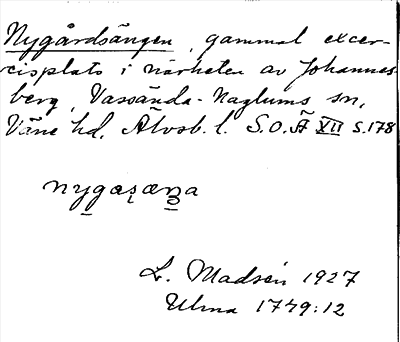 Nygårdsängen, gammal excer-
cisplats i närheten av Johannes-
berg, Vassända-Naglums sn,
Väne hd, Älvsb. l. S.O.Ä XII s.178
L. Madsén 1927
Ulma 1779:12